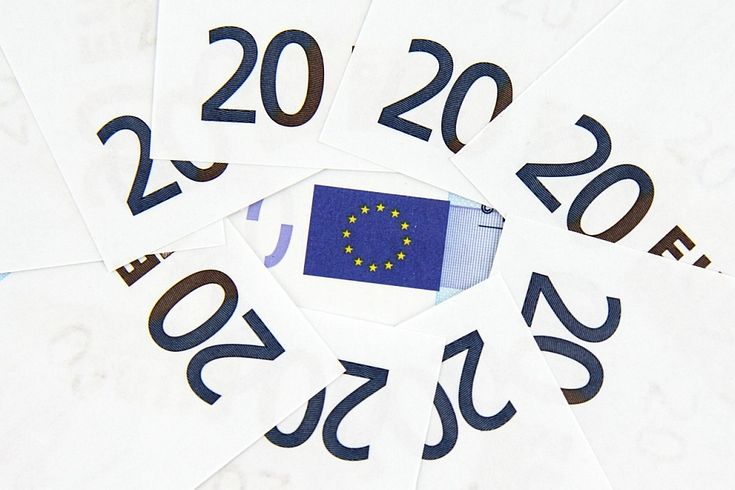 20
20
20
20
©
20
20
20
20